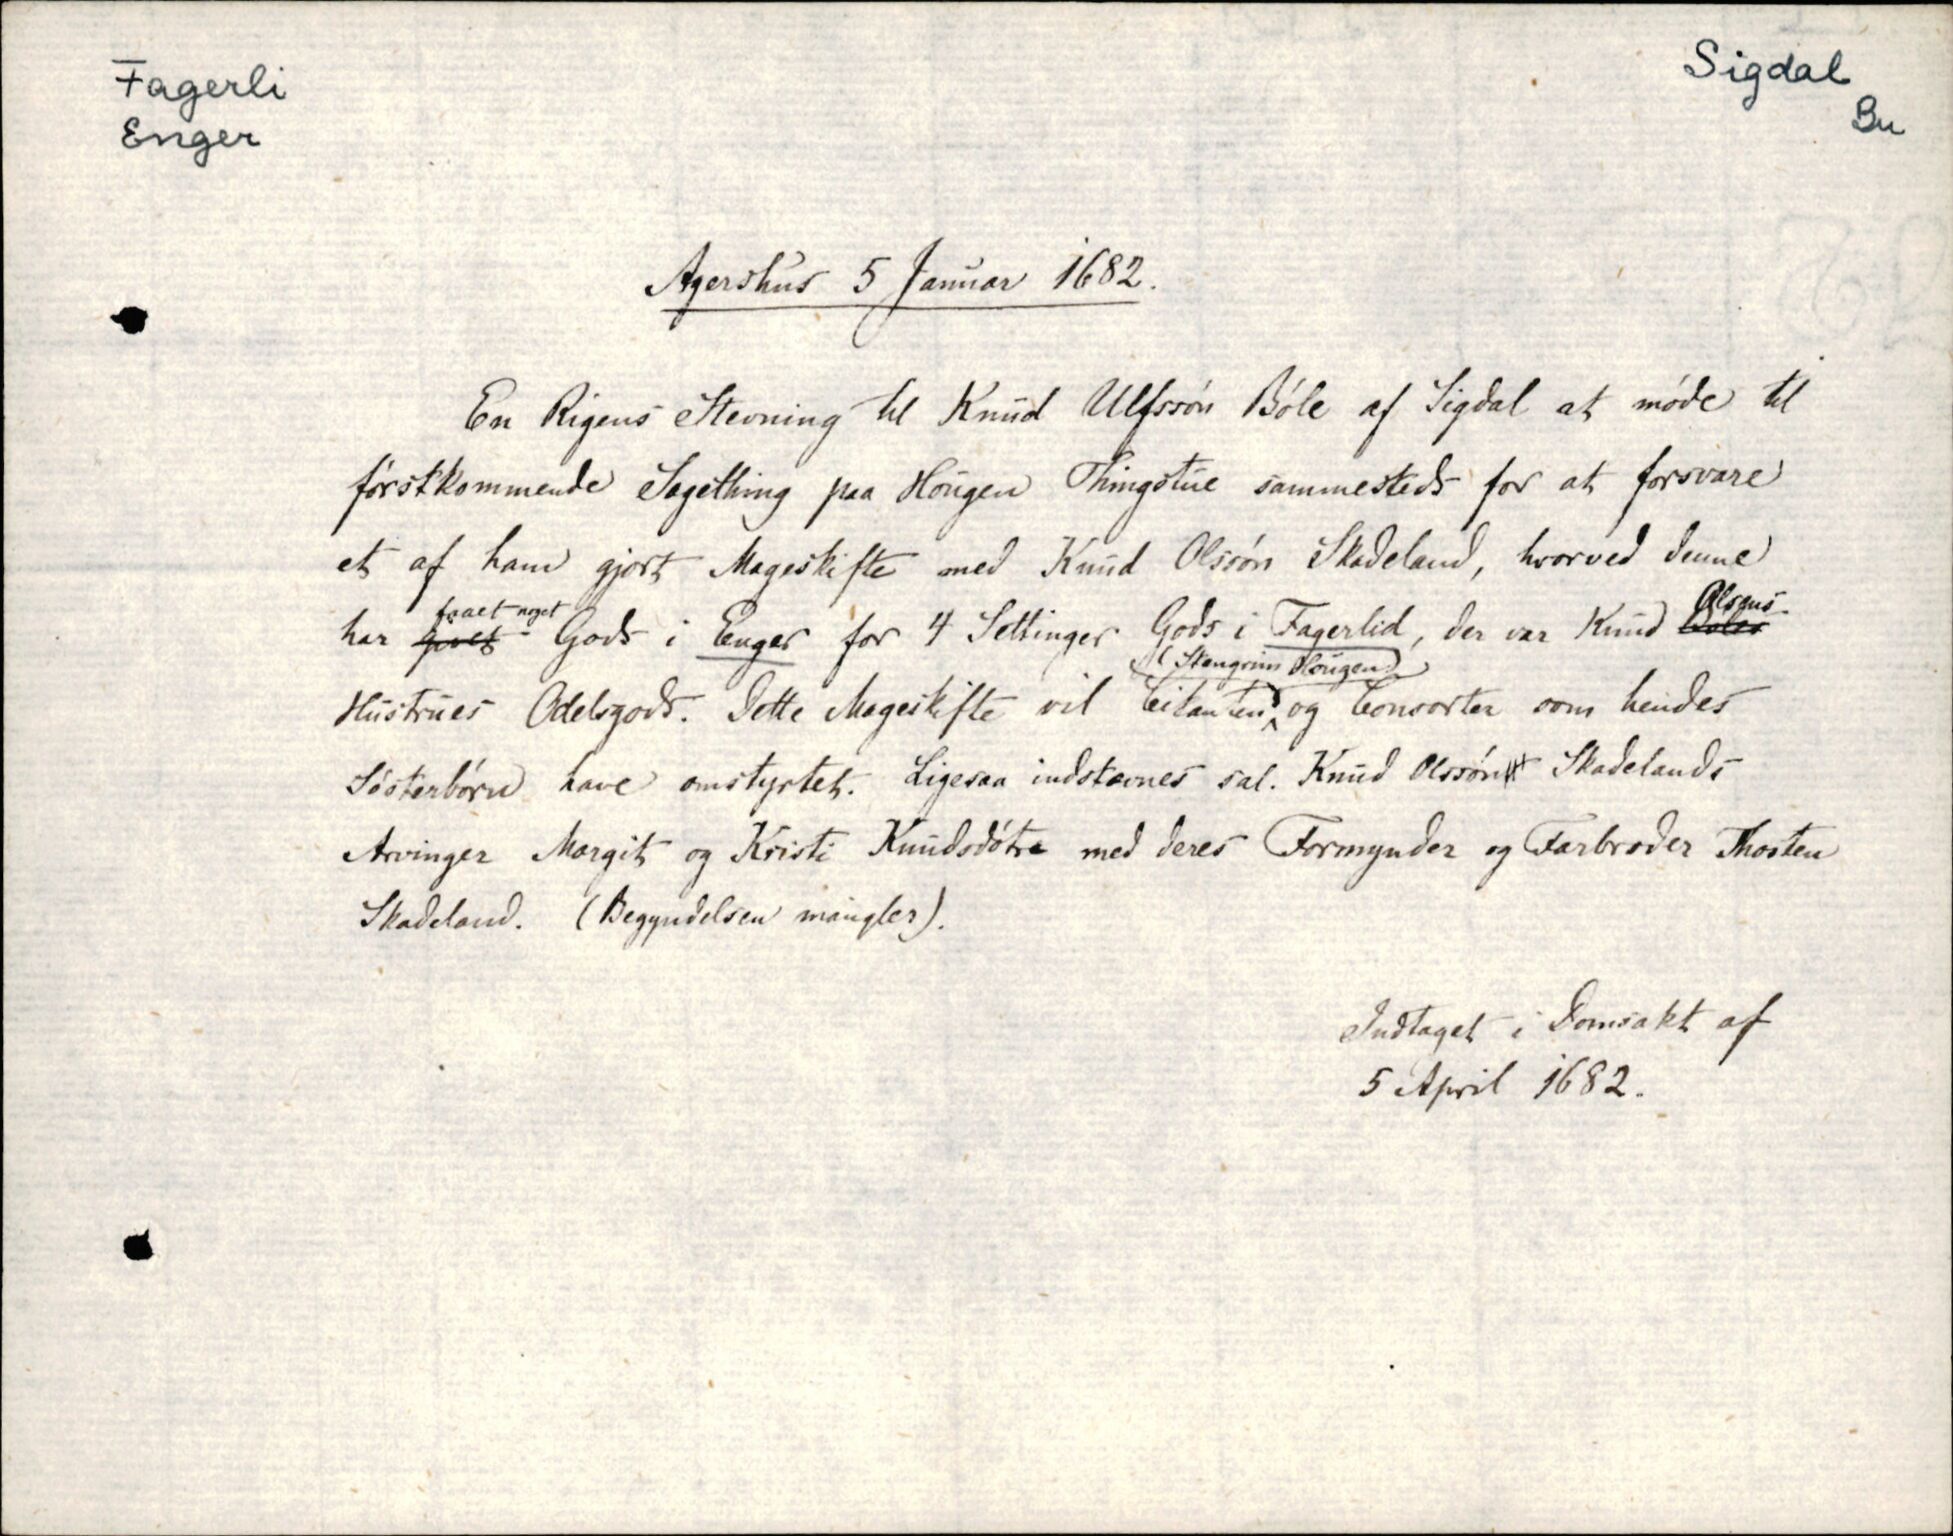 Fagerli
Enger
Sigdal
Bu
Agershus 5 Januar 1682.
En Rigens Stevning til Knud Ulfssön Böle af Sigdal at möde til
förstkommende Sagething paa Hougen Thingstue sammesteds for at forsvare
et af ham gjort Mageskifte med Knud Olssön Skadeland, hvorved denne
har faaet noget Gods i Enger for 4 Settinger Gods i Fagerlid, der var Knud Olsens
Hustrues Odelsgods. Dette Mageskifte vil Citanten (Stengrim Hougen) og Consorter som hendes
Sösterbörn have omstyrtet. Ligesaa indstævnes sal. Knud Olssön Skadelands
Arvinger Margit og Kristi Knudsdötre med deres Formynder og Farbroder Thosten
Skadeland. (Begyndelsen mangler).
Indtaget i Domsakt af
5 April 1682.